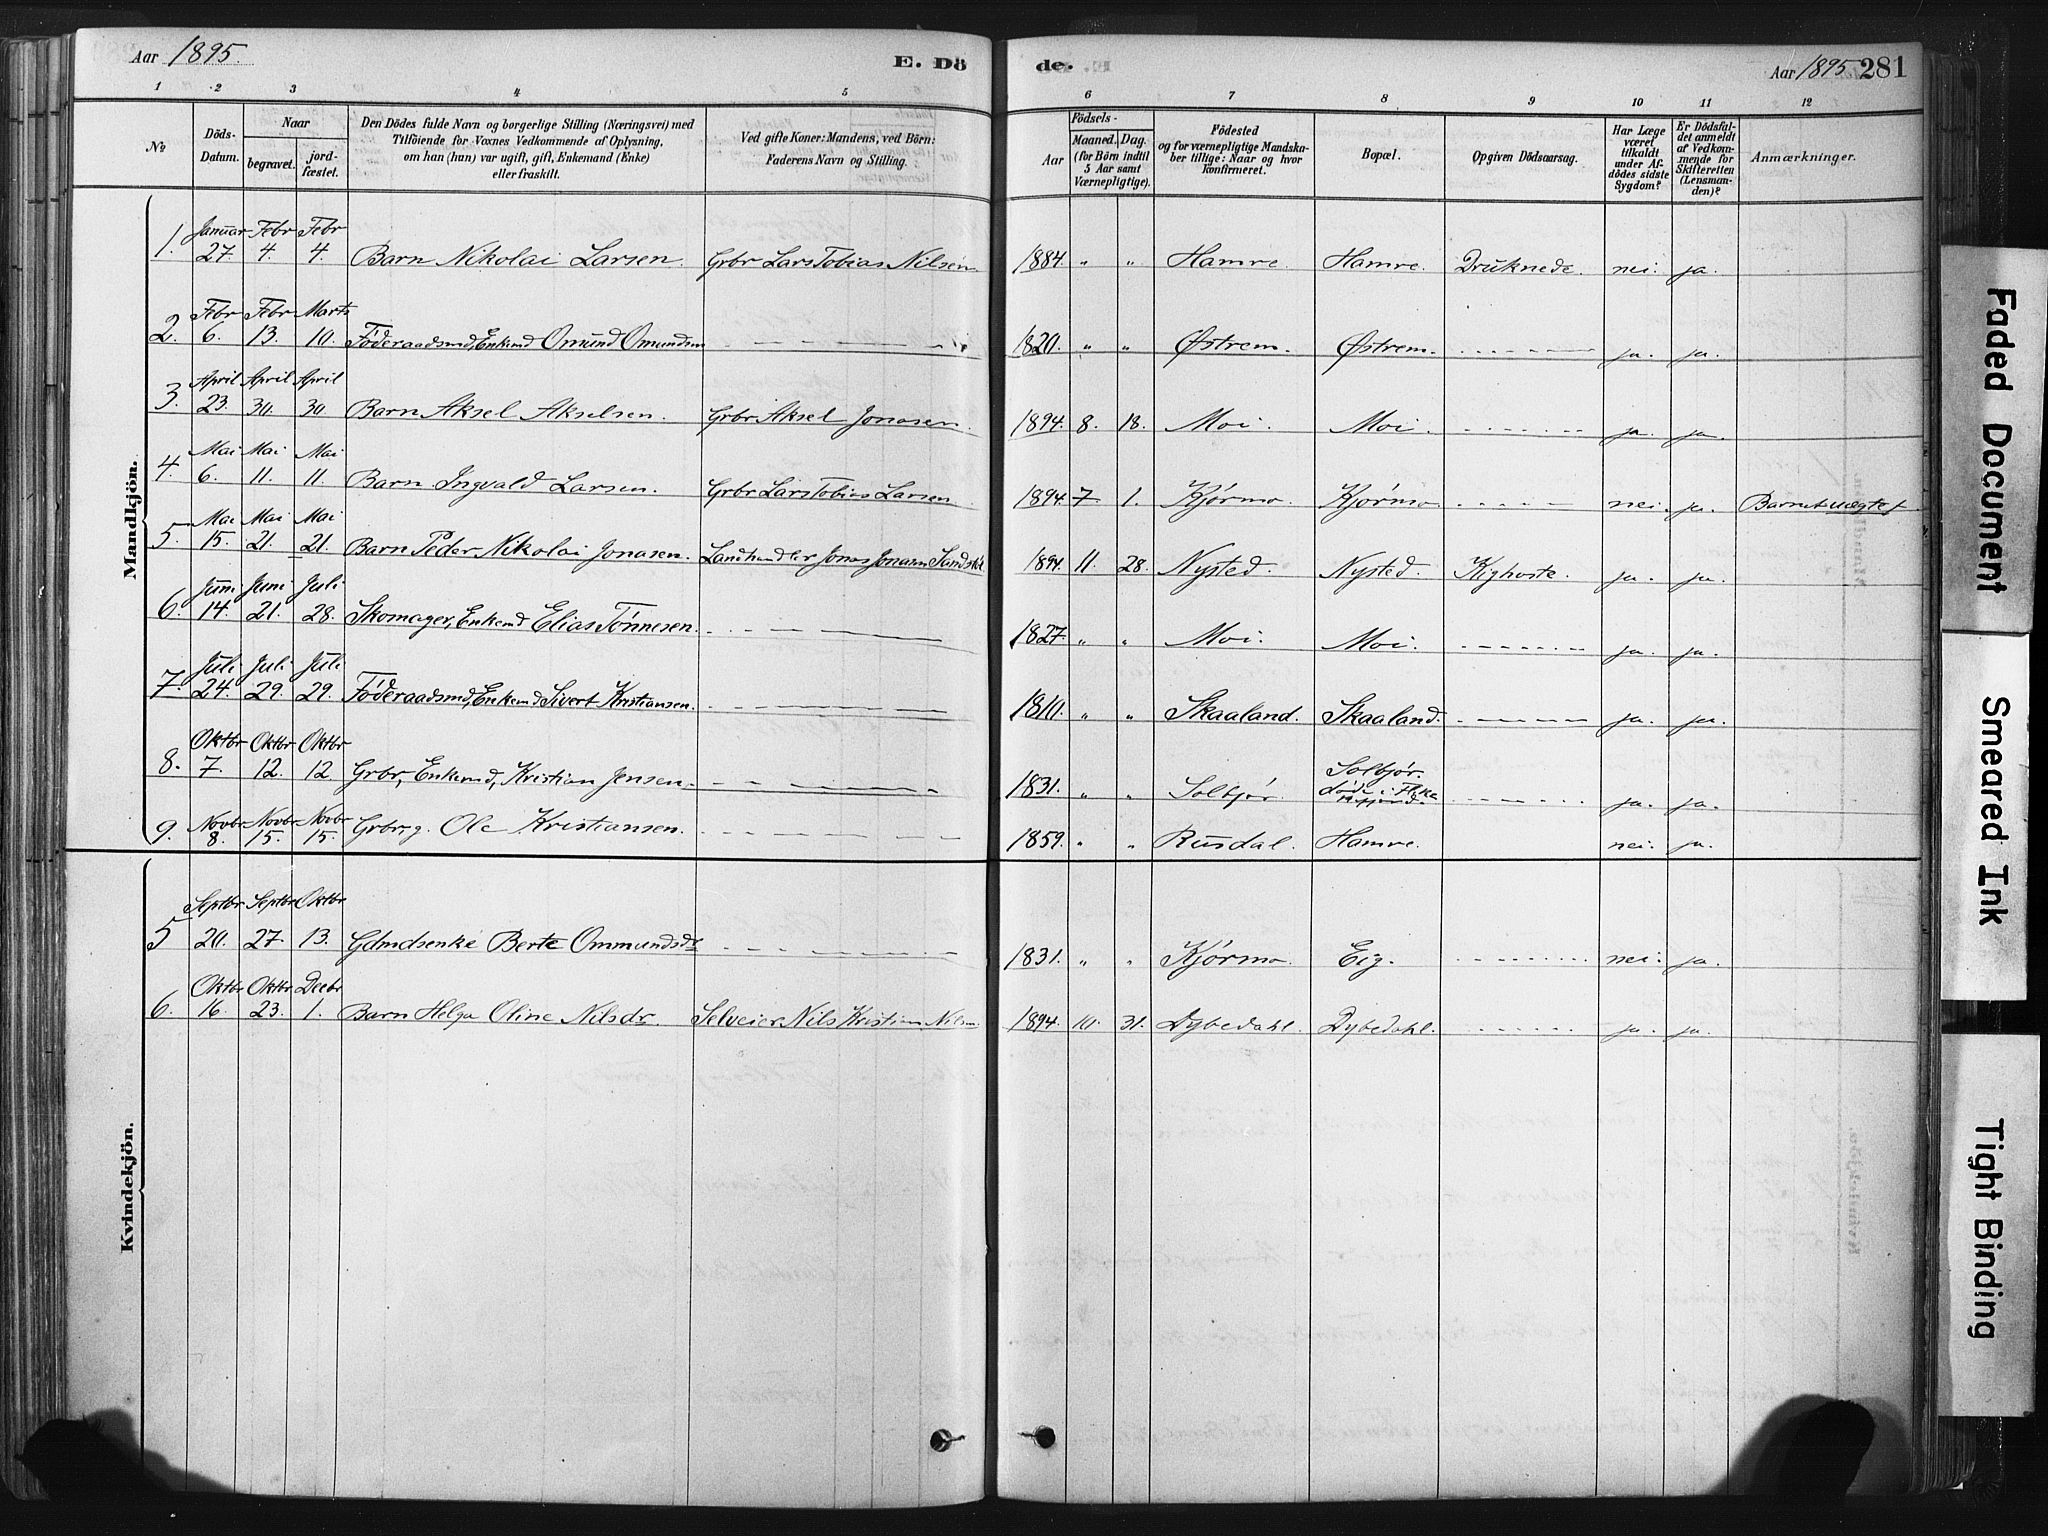 Aar 1895. E. Dö
de. Aar 1895 281
1 2 3 4 5
6 7 8 9 10 11 12
№
Döds-Datum.
Naar
begravet.
jord-fæstet.
Den Dödes fulde Navn og borgerlige Stilling (Næringsvei) med
Tilföiende for Voxnes Vedkommende af Oplysning,
om han (hun) var ugift, gift, Enkemand (Enke)
eller fraskilt.
Ved gifte Koner: Mandens, ved Börn:
Faderens Navn og Stilling.
Födsels-
Aar
Maaned. Dag.
(for Börn indtil
5 Aar samt
Værnepligtige).
Födested
og for værnepligtige Mandskaber tillige: Naar og hvor
konfirmeret.
Bopæl.
Opgiven Dödsaarsag.
Har Læge
været
tilkaldt
under Afdödes sidste
Sygdom?
Er Dödsfaldet anmeldt
af Vedkommende for
Skifteretten
(Lensmanden)?
Anmærkninger.
Mandkjön.
1. Januar 27. Febr 4. Febr 4. Barn Nikolai Larsen. Grbr Lars Tobias Nilsen 1884. " " Hamre. Hamre. Druknede. nei. ja.
2. Febr 6. Febr 13. Marts 10. Föderaadsmd, Enkemd Omund Omundsen 1820. " " Østrem. Østrem. ja. ja.
3. April 23. April 30. April 30. Barn Aksel Akselsen. Grbr Aksel Jonasen. 1894. 8. 18. Moi. Moi. ja. ja.
4. Mai 6. Mai 11. Mai 11. Barn Ingvald Larsen. Grbr Lars Tobias Larsen. 1894. 7 1. Kjørmo. Kjørmo. nei. ja. Barnet uægtef.
5. Mai 15. Mai 21. Mai 21. Barn Peder Nikolai Jonasen. Landhandler Jonas Jonasen 1894. 11. 28. Nysted. Nysted. Kighoste. ja. ja.
6. Juni 14. Juni 21. Juli 28. Skomager, Enkemd Elias Tönnesen. 1827. " " Moi. Moi. ja. ja.
7. Juli 24. Juli 29. Juli 29. Föderaadsmd, Enkemd Sivert Kristiansen. 1810. " " Skaaland. Skaaland. ja. ja.
8. Oktbr 7. Oktbr 12. Oktbr 12. Grbr, Enkemd, Kristian Jensen. 1831. " " Solbjør. Solbjør. ja. ja.
9. Novbr 8. Novbr 15. Novbr 15. Grbr, g. Ole Kristiansen. 1859. " " Rusdal. Hamre. nei. ja.
Kvindekjön.
5 Septbr 20. Septbr 27. Oktbr 13. Gdmdsenke Berte Ommundsdr 1831. " " Kjørmo. Eig. nei. ja.
6. Oktbr 16. Oktbr 23. Decbr 1. Barn Helga Oline Nilsdr. Selveier Nils Kristian Nilsen. 1894. 10. 31. Dybedahl. Dybedahl. ja. ja.
Faded Document
Smeared Ink
Tight Binding